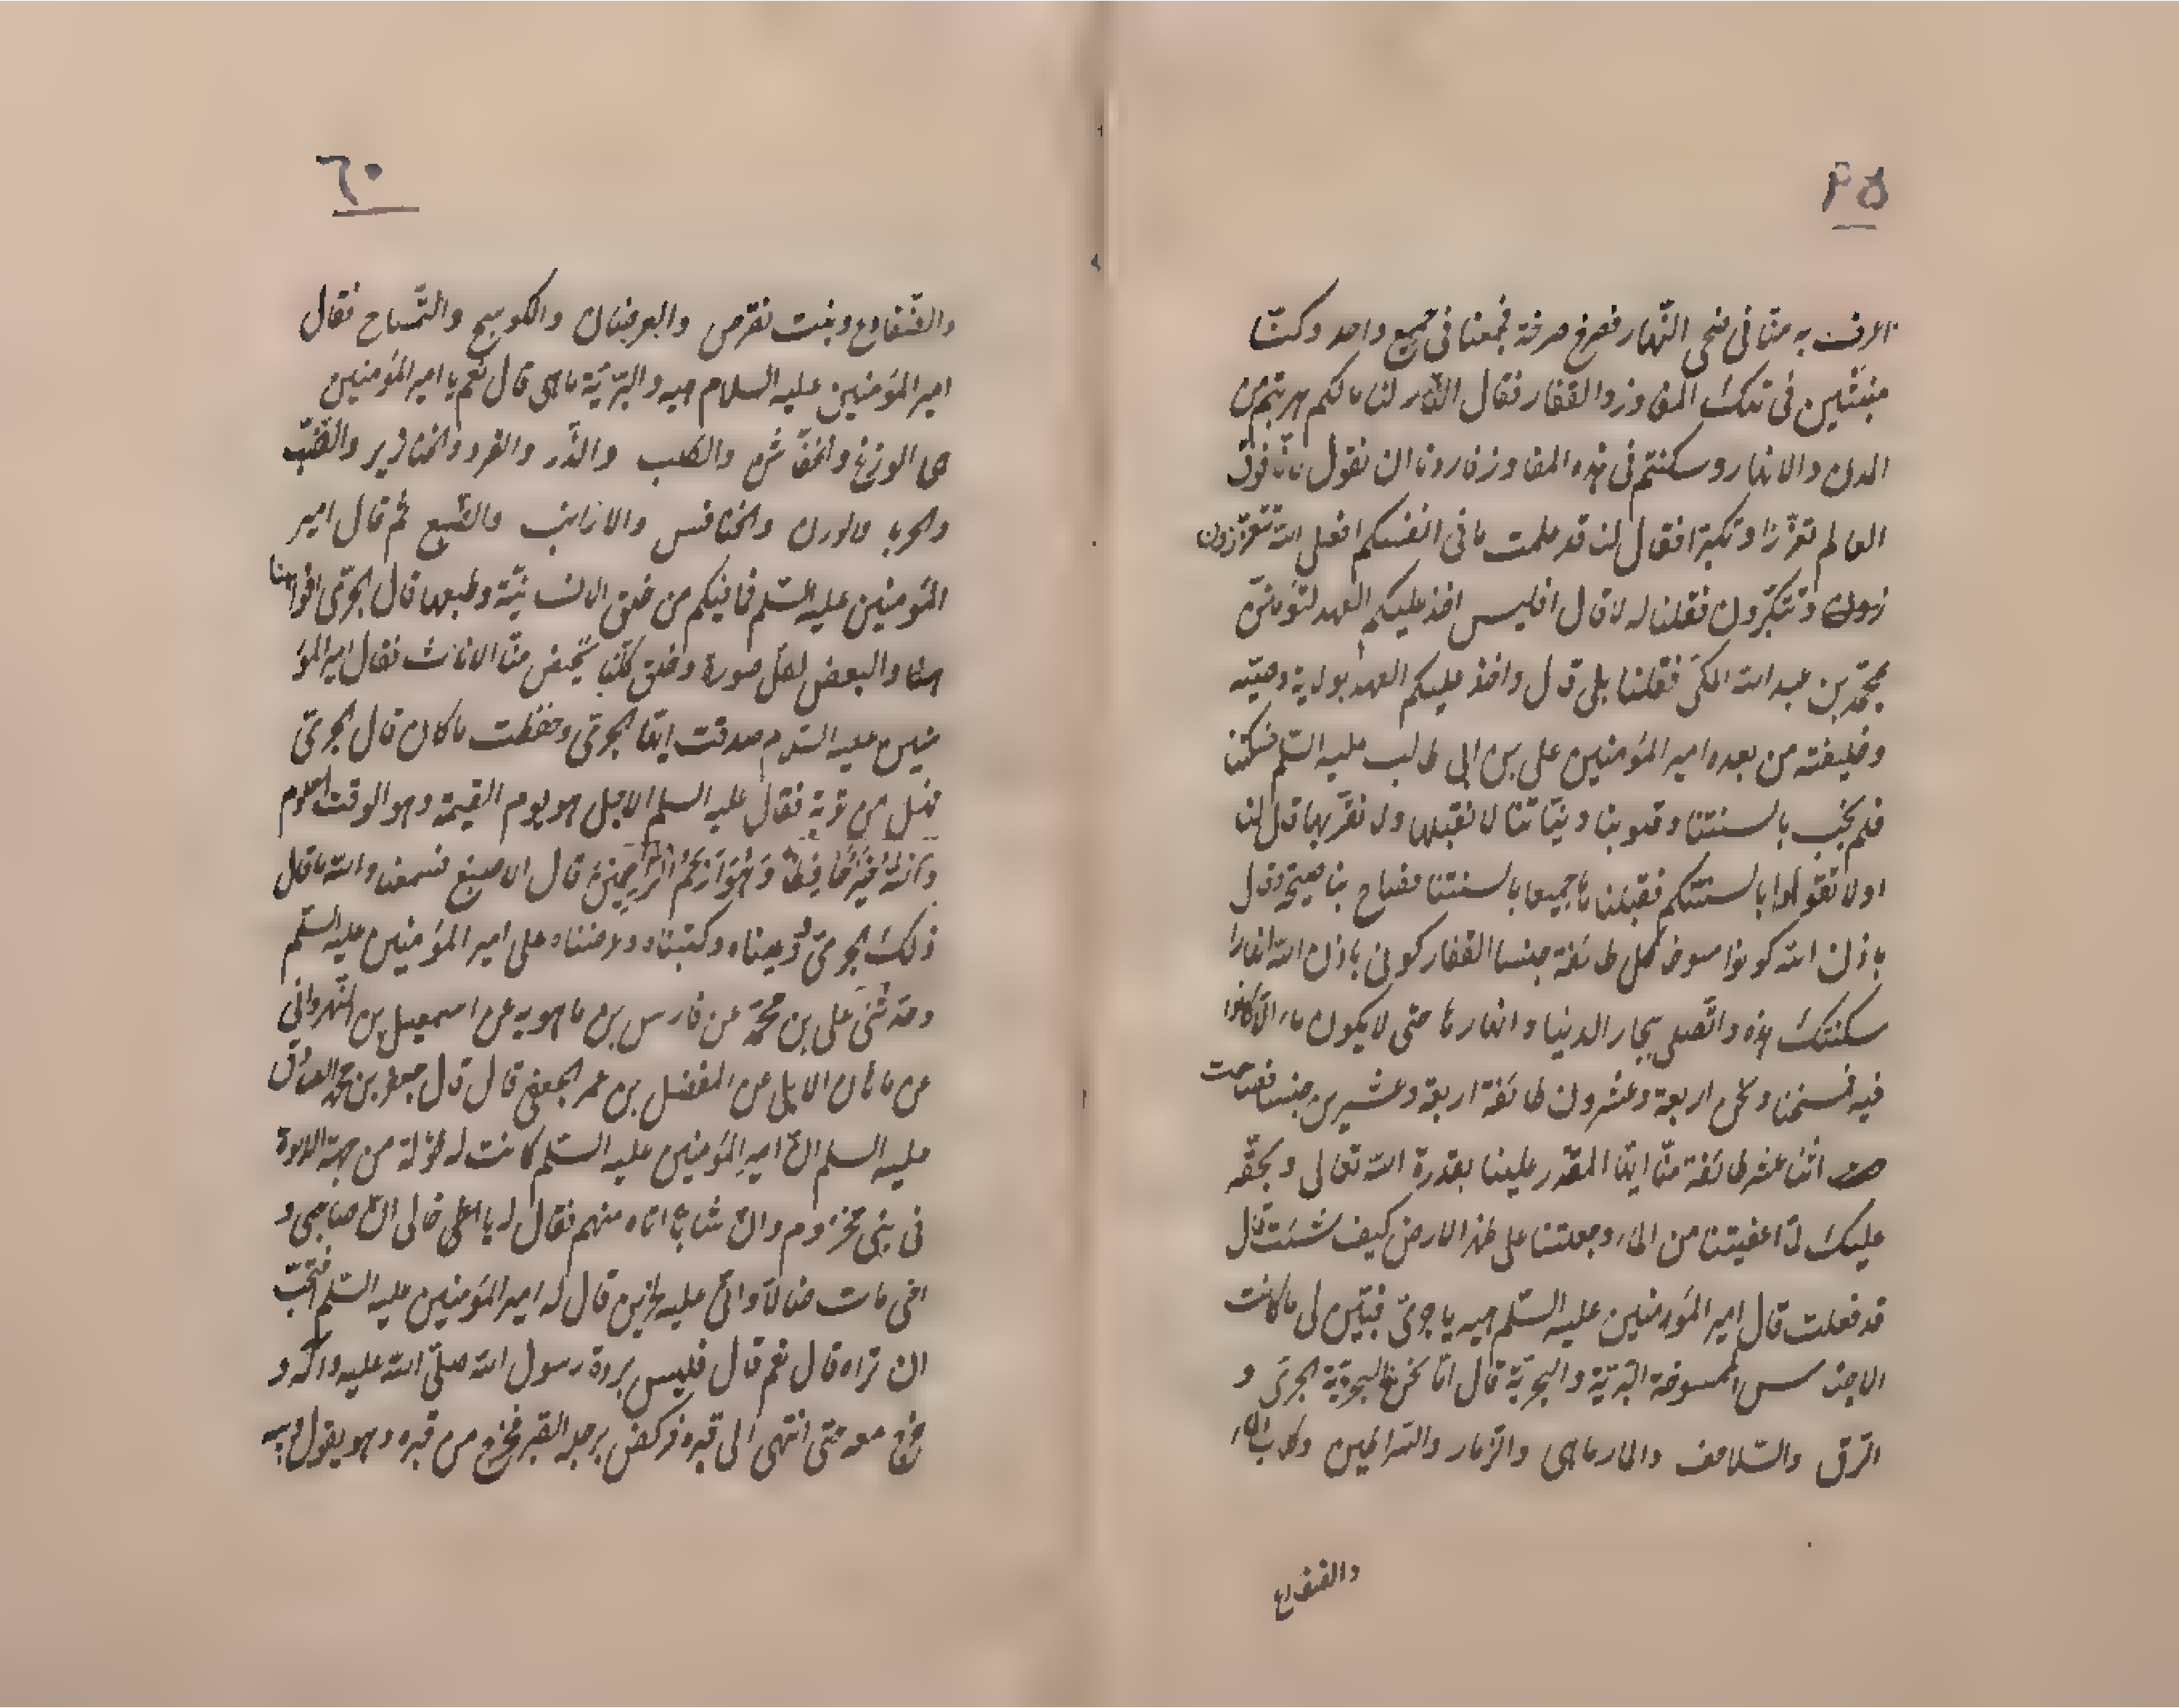 ٤٥
اعرف به منّا في ضحى النّهار فصرخ صرخة فجمعنا في جميع واحد وكنّا
منبثّين في تلك المفاوز والقفار فقال لنا مالكم هربتم من
المدن والانهار وسكنتم في هذه المفاوز فاردنا ان نقول لانّا فوق
العالم تعزّزا وتكبّرا فقال لنا قد علمت ما في انفسكم افعلى الله تتعزّزون
زون وتتكبّرون فقلنا له لا قال افليس اخذ عليكم العهد لتؤمننّ
بمحمّد بن عبد الله المكّي فقلنا بلى قال واخذ عليكم العهد بولاية وصيّه
وخليفته من بعده امير المؤمنين علي بن ابي طالب عليه السّلم فسكتنا
فلم نجب بالسنتنا وقلوبنا ونيّاتنا لا نقبلها ولا نقرّ بها قال لنا
او لا تقولوا بالسنتكم فقلنا جميعا بالسنتنا فصاح بنا صيحة وقال
باذن الله كونوا مسوخا كل طائفة جنسا القفار كوني باذن الله انهارا
سكنتك هذه واتّصلي ببحار الدنيا وانهارها حتى لا يكون ماء الّا كانوا
فيه فمسخنا ونحن اربعة وعشرون طائفة اربعة وعشرين جنسا فصاحت
اثنا عشر طائفة منّا ايّها المقدّر علينا بقدرة الله تعالى وبحقّه
عليك لمّا اعفيتنا من الماء وجعلتنا على ظهر الارض كيف شئت قال
قد فعلت قال امير المؤمنين عليه السّلم هيه يا جرّي فبيّن لي ما كانت
الاجناس الممسوخة البّرّية والبحريّة قال امّا نحن البحريّة الجرّي و
الرّق والسّلاحف والمارماهي والزّمار والسّراطين وكلاب الماء
والضفادع
٦٠
والضّفادع وبنت نقرص والعرضان والكوسج والتّمساح فقال
امير المؤمنين عليه السلام هيه والبرّيّة ما هي قال نعم يا امير المؤمنين
هي الوزغ والخفّاش والكلب والدّر والقرد والخنازير والضّبّ
والحربا والورل والخنافس والارانب والضّبع ثم قال امير
المؤمنين عليه السّلم فما فيكم من خلق الانسانيّة وطبعها قال الجرّي افواهنا
هنا والبعض لكل صورة وخلق كلّنا تحيض منّا الاناث فقال امير المؤ
منين عليه السّلام صدقت ايّها الجرّي وحفظت ما كان قال الجرّي
فهل من توبة فقال عليه السلم الاجل هو يوم القيمة وهو الوقت المعلوم
والله خير حافظا وهو ارحم الرّاحمين قال الاصبغ فسمعنا والله ما قال
ذلك الجرّي ووعيناه وكتبناه وعرضناه على امير المؤمنين عليه السّلم
وحدثني علي بن محمّد عن فارس بن ماهويه عن اسمعيل بن النّهرواني
عن ماهان الابلي عن المفضل بن عمر الجعفي قال قال جعفر بن محمّد الصّادق
عليه السلم انّ امير المؤمنين عليه السّلم كانت له خؤلة من جهة الابوة
في بني مخزوم وانّ شابّا اتاه منهم فقال له يا علي خالي انّ صاحبي و
اخي مات ضالّا وانّي عليه لحزين قال له امير المؤمنين عليه السّلم فتحبّ
ان تراه قال نعم قال فلبس بردة رسول الله صلّى الله عليه واله و
خرج معه حتى انتهى الى قبره فركض برجله القبر فخرج من قبره وهو يقول